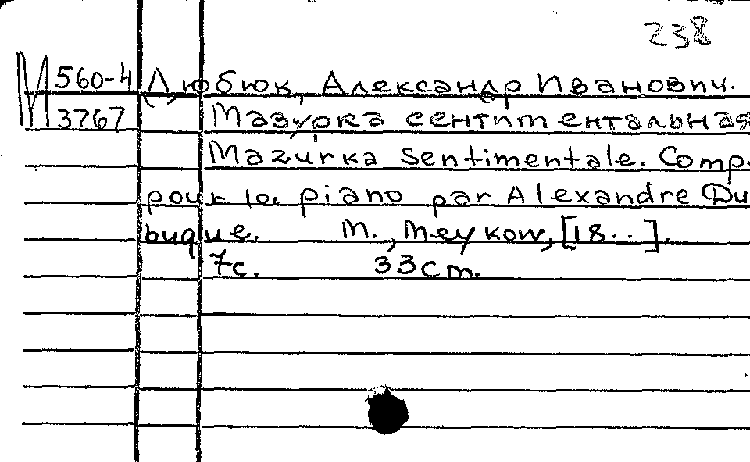 238
М 560-4 Дюбюк, Александр Иванович.
3767 Мазурка сентиментальная
Mazurka sentimentale. Comp.
pour le piano par Alexandre Du
buque. М., Meykow, [18..].
7с. 33 cm.